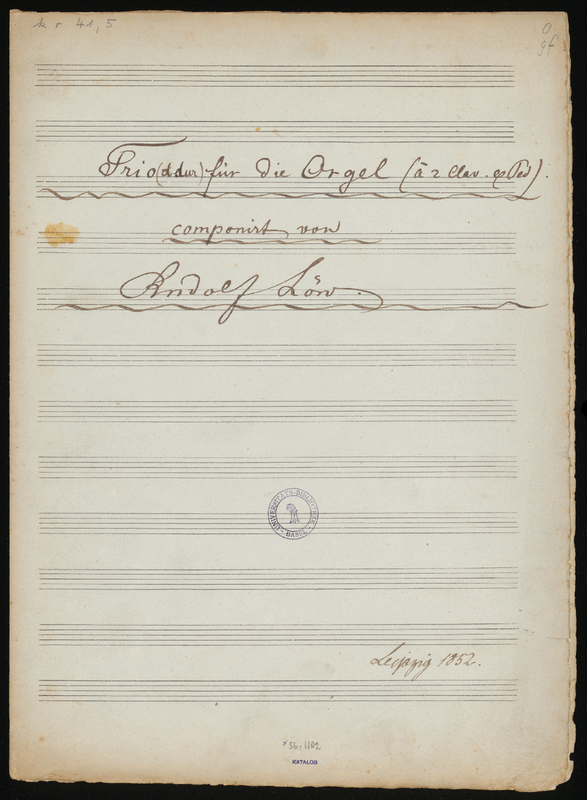 k r 41, 5
Trio (d dur) für die Orgel (à 2 Clav. & Ped).
componirt von
Rudolf Löw.
UNIVERSITÄTS-BIBLIOTHEK
BASEL
Leipzig 1852.
KATALOG